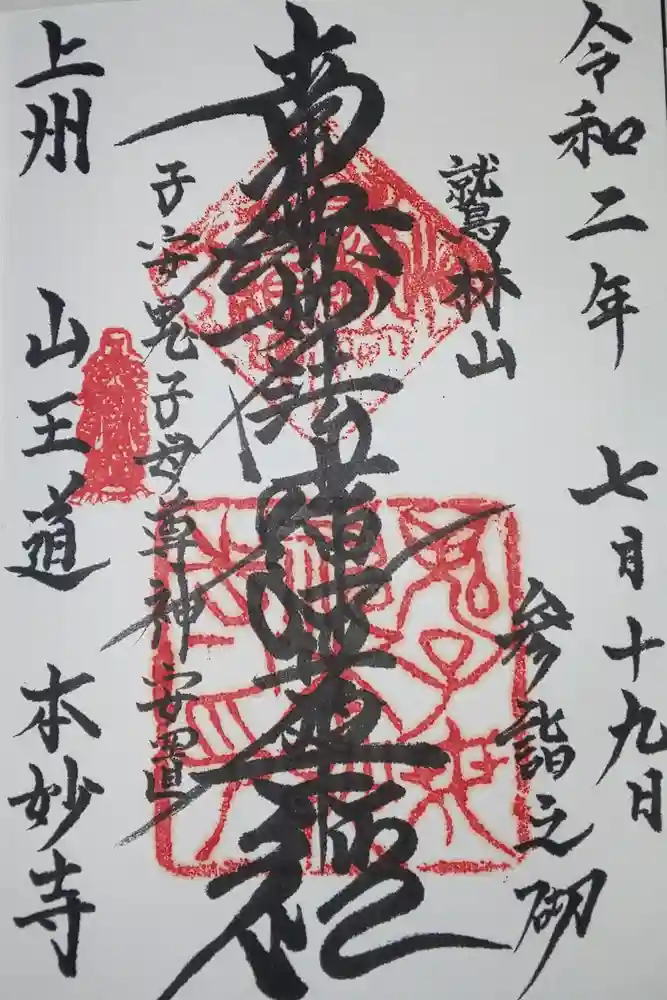 令和二年 七月十九日
参詣之砌
鷲林山
南無妙法蓮華経
子安鬼子母尊神安置
上州 山王道 本妙寺